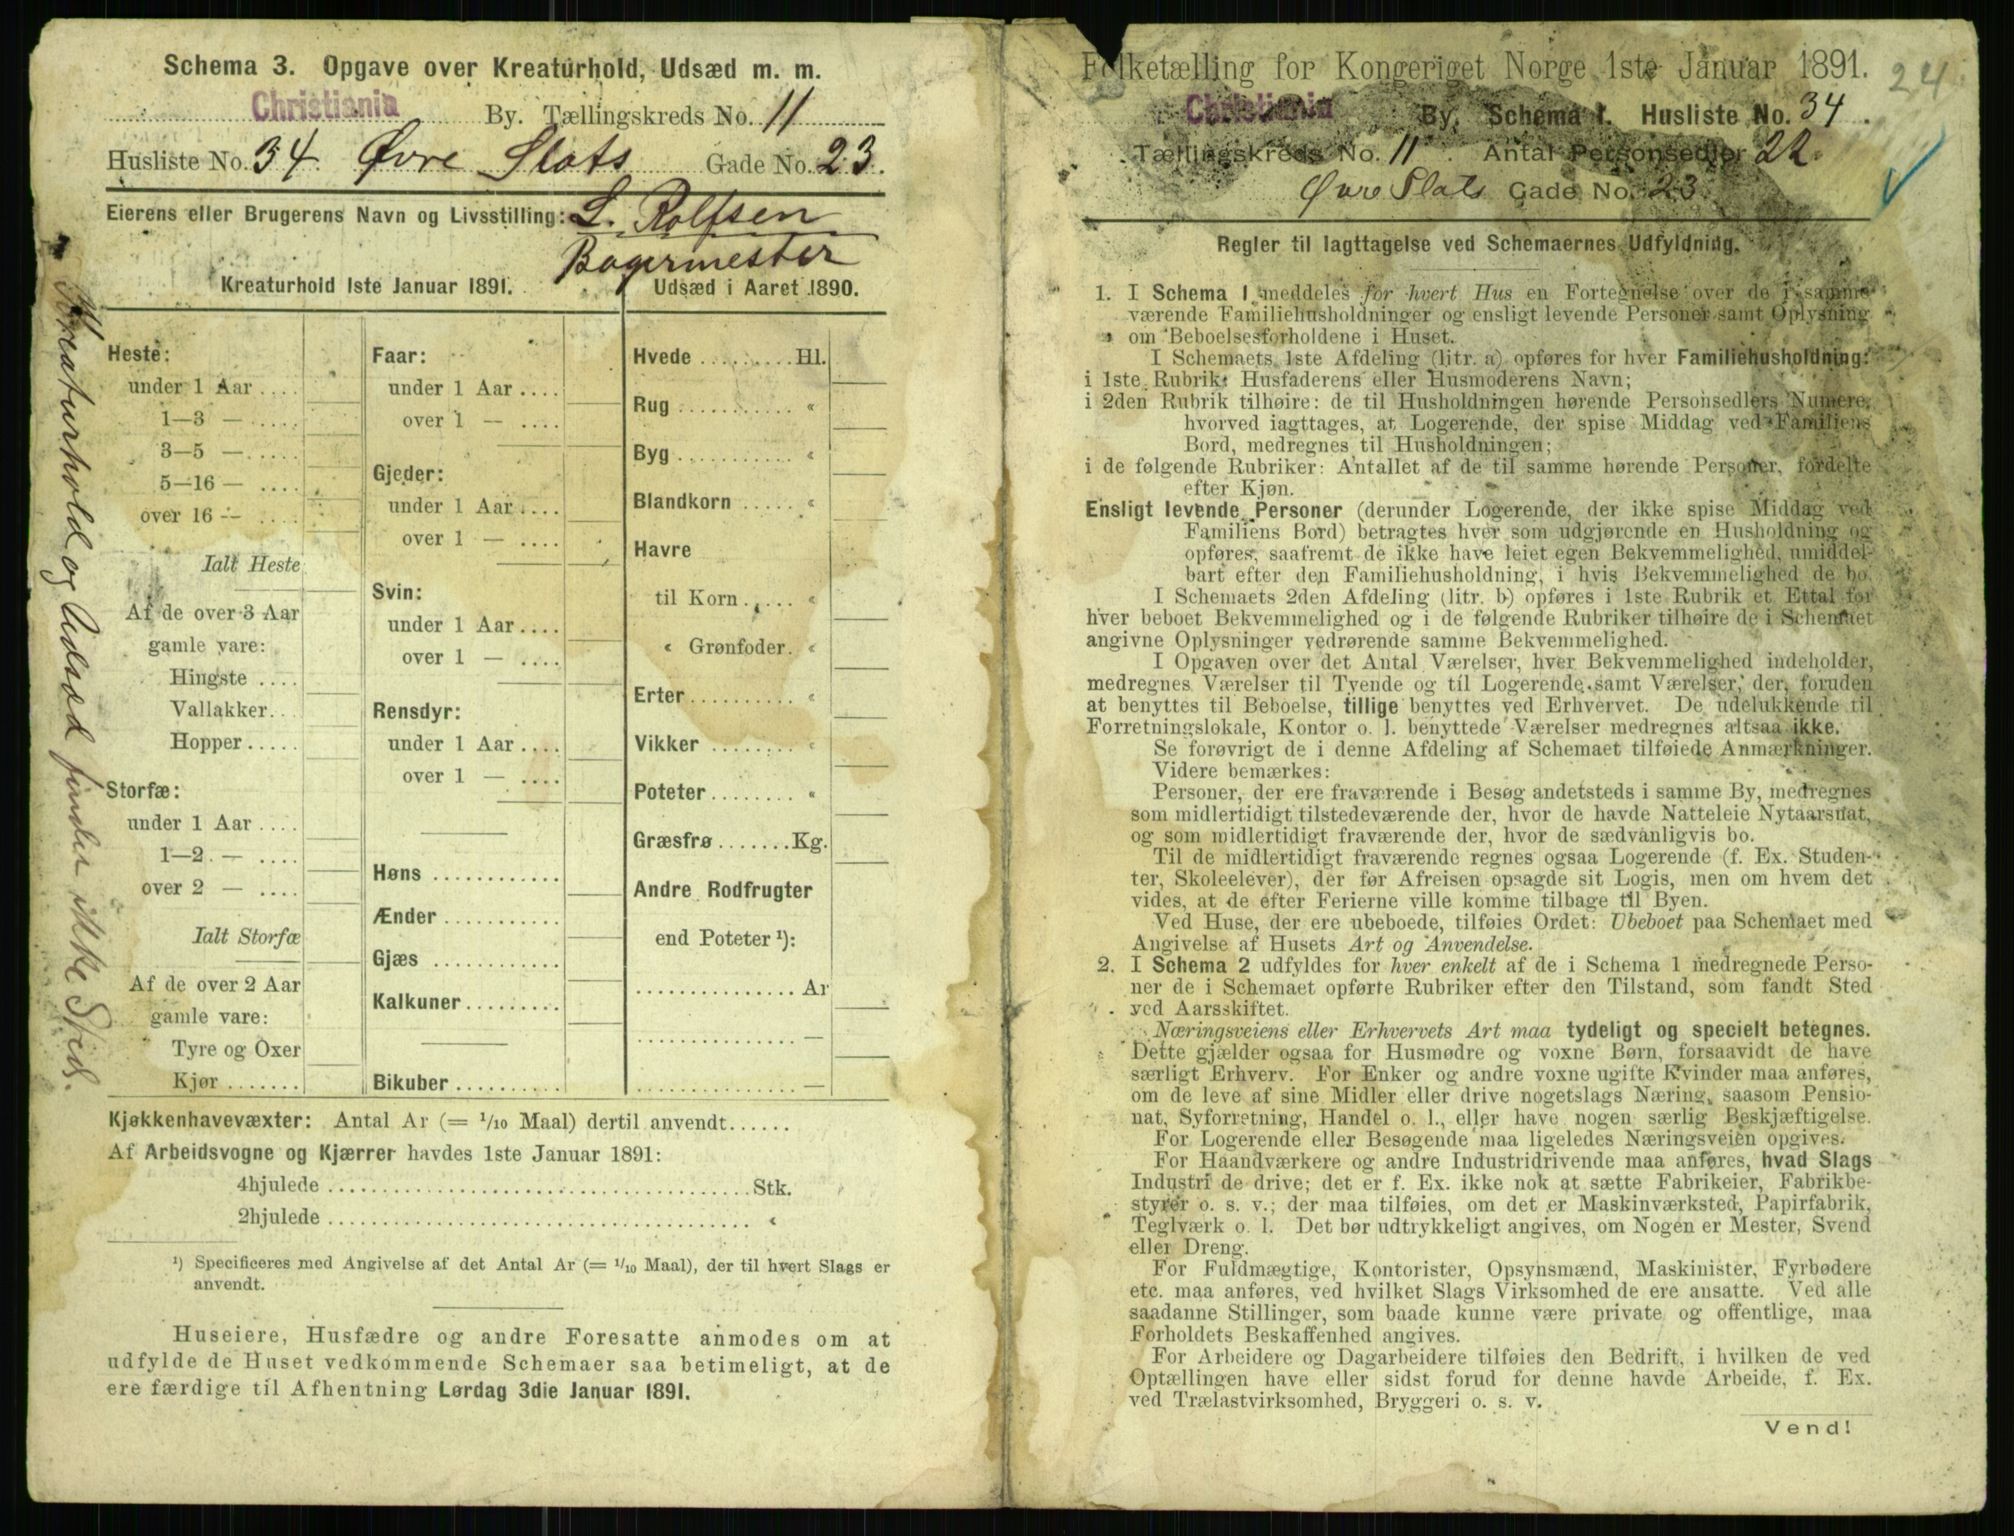 Schema 3. Opgave over Kreaturhold, Udsæd m. m.
Christiania By. Tællingskreds No. 11
Husliste No. 34. Øvre Slots Gade No. 23.
Eierens eller Brugerens Navn og Livsstilling: L. Rolfsen
Bagermester
Kreaturhold og Udsæd finder ikke Sted.
Kreaturhold 1ste Januar 1891.
Heste:
under 1 Aar ....
1—3 — ....
3—5 — ....
5—16 — ....
over 16 — ....
Ialt Heste
Af de over 3 Aar
gamle vare:
Hingste ....
Vallakker...
Hopper.....
Storfæ:
under 1 Aar ....
1—2 — ....
over 2 — ....
Ialt Storfæ
Af de over 2 Aar
gamle vare:
Tyre og Oxer
Kjør.......
Faar:
under 1 Aar ....
over 1 — ....
Gjeder:
under 1 Aar ....
over 1 — ....
Svin:
under 1 Aar ....
over 1 — ....
Rensdyr:
under 1 Aar ....
over 1 — ....
Høns ............
Ænder ...........
Gjæs ............
Kalkuner.........
Bikuber..........
Udsæd i Aaret 1890.
Hvede ......... Hl.
Rug ........... «
Byg ........... «
Blandkorn ..... «
Havre
til Korn..... «
« Grønfoder. «
Erter ......... «
Vikker ........ «
Poteter........ «
Græsfrø .......Kg.
Andre Rodfrugter
end Poteter ¹):
............... Ar
............... —
............... —
Kjøkkenhavevæxter: Antal Ar (= 1/10 Maal) dertil anvendt......
Af Arbeidsvogne og Kjærrer havdes 1ste Januar 1891:
4hjulede ........................................ Stk.
2hjulede ........................................ «
¹) Specificeres med Angivelse af det Antal Ar (= 1/10 Maal), der til hvert Slags er
anvendt.
Huseiere, Husfædre og andre Foresatte anmodes om at
udfylde de Huset vedkommende Schemaer saa betimeligt, at de
ere færdige til Afhentning Lørdag 3die Januar 1891.
Folketælling for Kongeriget Norge 1ste Januar 1891. 24
Christiania By. Schema 1. Husliste No. 34.
Tællingskreds No. 11. Antal Personsedler 22.
Øvre Slots Gade No. 23.
Regler til Iagttagelse ved Schemaernes Udfyldning.
1. I Schema 1 meddeles for hvert Hus en Fortegnelse over de i samme
værende Familiehusholdninger og ensligt levende Personer samt Oplysning
om Beboelsesforholdene i Huset.
I Schemaets 1ste Afdeling (litr. a) opføres for hver Familiehusholdning:
i 1ste Rubrik: Husfaderens eller Husmoderens Navn;
i 2den Rubrik tilhøire: de til Husholdningen hørende Personsedlers Numere,
hvorved iagttages, at Logerende, der spise Middag ved Familiens
Bord, medregnes til Husholdningen;
i de følgende Rubriker: Antallet af de til samme hørende Personer, fordelte
efter Kjøn.
Ensligt levende Personer (derunder Logerende, der ikke spise Middag ved
Familiens Bord) betragtes hver som udgjørende en Husholdning og
opføres, saafremt de ikke have leiet egen Bekvemmelighed, umiddel-
bart efter den Familiehusholdning, i hvis Bekvemmelighed de bo.
I Schemaets 2den Afdeling (litr. b) opføres i 1ste Rubrik et Ettal for
hver beboet Bekvemmelighed og i de følgende Rubriker tilhøire de i Schemaet
angivne Oplysninger vedrørende samme Bekvemmelighed.
I Opgaven over det Antal Værelser, hver Bekvemmelighed indeholder,
medregnes Værelser til Tyende og til Logerende samt Værelser, der, foruden
at benyttes til Beboelse, tillige benyttes ved Erhvervet. De udelukkende til
Forretningslokale, Kontor o. l. benyttede Værelser medregnes altsaa ikke.
Se forøvrigt de i denne Afdeling af Schemaet tilføiede Anmærkninger.
Videre bemærkes:
Personer, der ere fraværende i Besøg andetsteds i samme By, medregnes
som midlertidigt tilstedeværende der, hvor de havde Natteleie Nytaarsnat,
og som midlertidigt fraværende der, hvor de sædvanligvis bo.
Til de midlertidigt fraværende regnes ogsaa Logerende (f. Ex. Studen-
ter, Skoleelever), der før Afreisen opsagde sit Logis, men om hvem det
vides, at de efter Ferierne ville komme tilbage til Byen.
Ved Huse, der ere ubeboede, tilføies Ordet: Ubeboet paa Schemaet med
Angivelse af Husets Art og Anvendelse.
2. I Schema 2 udfyldes for hver enkelt af de i Schema 1 medregnede Perso-
ner de i Schemaet opførte Rubriker efter den Tilstand, som fandt Sted
ved Aarsskiftet.
Næringsveiens eller Erhvervets Art maa tydeligt og specielt betegnes.
Dette gjælder ogsaa for Husmødre og voxne Børn, forsaavidt de have
særligt Erhverv. For Enker og andre voxne ugifte Kvinder maa anføres,
om de leve af sine Midler eller drive nogetslags Næring, saasom Pensio-
nat, Syforretning, Handel o. l., eller have nogen særlig Beskjæftigelse.
For Logerende eller Besøgende maa ligeledes Næringsveien opgives.
For Haandværkere og andre Industridrivende maa anføres, hvad Slags
Industri de drive; det er f. Ex. ikke nok at sætte Fabrikeier, Fabrikbe-
styrer o. s. v.; der maa tilføies, om det er Maskinværksted, Papirfabrik,
Teglværk o. l. Det bør udtrykkeligt angives, om Nogen er Mester, Svend
eller Dreng.
For Fuldmægtige, Kontorister, Opsynsmænd, Maskinister, Fyrbødere
etc. maa anføres, ved hvilket Slags Virksomhed de ere ansatte. Ved alle
saadanne Stillinger, som baade kunne være private og offentlige, maa
Forholdets Beskaffenhed angives.
For Arbeidere og Dagarbeidere tilføies den Bedrift, i hvilken de ved
Optællingen have eller sidst forud for denne havde Arbeide, f. Ex.
ved Trælastvirksomhed, Bryggeri o. s. v.
Vend!